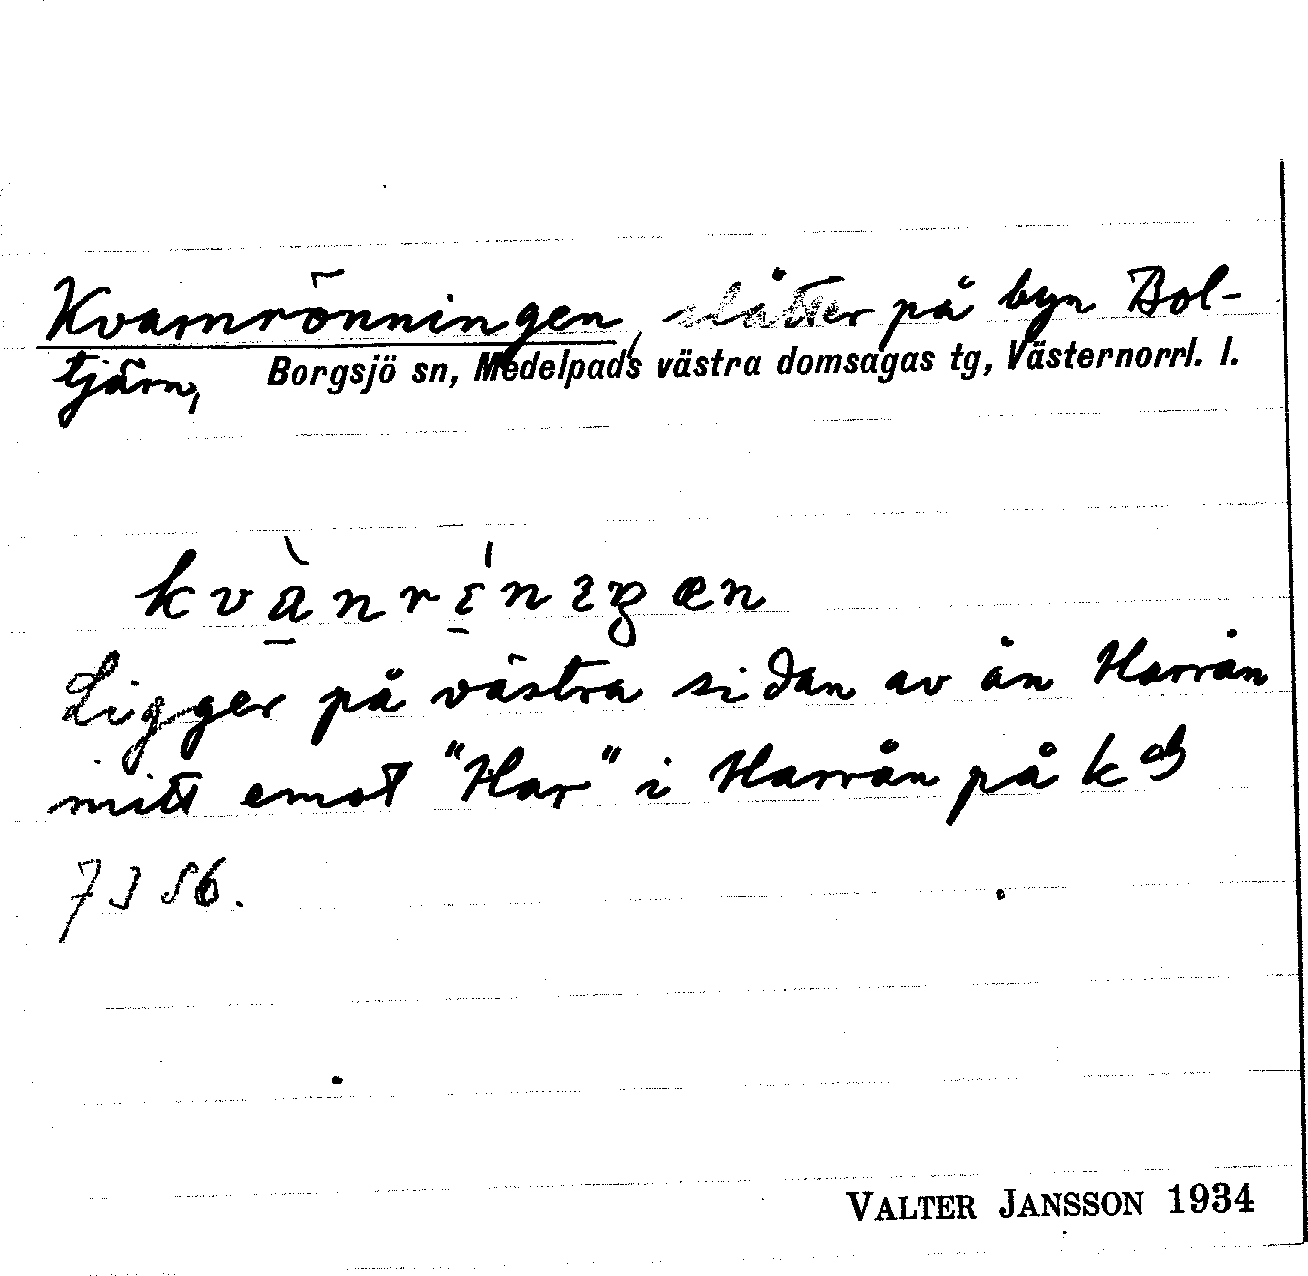 Kvarnrönningen, slåtter på byn Bol-
tjärn, Borgsjö sn, Medelpads västra domsagas tg, Västernorrl. l.
Ligger på västra sidan av ån Harrån
mitt emot "Har" i Harrån på kbl
7356.
VALTER JANSSON 1934